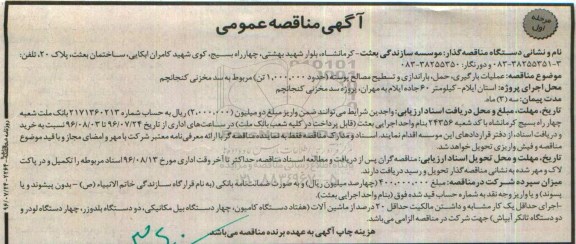 آگهی مناقصه عمومی
مرحله اول
نام و نشانی دستگاه مناقصه گذار: موسسه سازندگی بعثت- کرمانشاه، بلوار شهید بهشتی، چهارراه بسیج، کوی شهید کامران ابکایی، ساختمان بعثت، پلاک ۲۰، تلفن:
۳-۰۸۳-۳۸۲۵۵۳۵۱ و دورنگار: ۳۸۲۵۵۳۵۰-۰۸۳
موضوع مناقصه: عملیات بارگیری، حمل، باراندازی و تسطیح مصالح پوسته (حدود ۱,۰۰۰,۰۰۰ تن) مربوط به سد مخزنی کنجانچم
محل اجرای پروژه: استان ایلام- کیلومتر ۶۰ جاده ایلام به مهران، پروژه سد مخزنی کنجانچم
مدت پیمان: سه (۳) ماه.
تاریخ، مهلت، مبلغ و محل دریافت اسناد ارزیابی: واجدین شرایط می‌توانند ضمن واریز مبلغ دو میلیون (۲,۰۰۰,۰۰۰) ریال به حساب شماره ۲۱۷۱۳۶۰۲۱۳ بانک ملت شعبه
چهارراه بسیج کرمانشاه با کد شعبه ۲۴۳۵۶ بنام واحد اجرایی بعثت (قابل پرداخت در کلیه شعب بانک ملت) در ساعت‌های اداری از تاریخ ۹۶/۰۷/۲۴ تا ۹۶/۰۸/۰۲ نسبت به خرید
و دریافت اسناد، از دفتر قراردادهای این موسسه اقدام نمایند. اسناد و مدارک مناقصه فقط به نماینده مناقصه گر با ارائه معرفی‌نامه معتبر شرکت با مهر و امضای مجاز و با قید موضوع
مناقصه و فیش واریزی تحویل خواهد شد.
تاریخ، مهلت و محل تحویل اسناد ارزیابی: مناقصه گران پس از دریافت و مطالعه اسناد مناقصه، حداکثر تا آخر وقت اداری مورخ ۹۶/۰۸/۱۳ اسناد مربوطه را تکمیل و در پاکت
لاک و مهر شده به نشانی مناقصه گذار تحویل و رسید دریافت دارند.
میزان سپرده شرکت در مناقصه: مبلغ ۴۰۰,۰۰۰,۰۰۰ (چهارصد میلیون ریال) و به صورت ضمانت‌نامه بانکی (به نام قرارگاه سازندگی خاتم الانبیاء (ص) –بدون پیشوند و یا
پسوند) و یا واریز وجه نقد به شماره حساب قید شده فوق (بنام واحد اجرایی بعثت).
-اجرای حداقل یک کار مشابه و داشتن مالکیت حداقل ۲۰ درصد از ماشین آلات (هفتاد دستگاه کامیون، چهار دستگاه بیل مکانیکی، دو دستگاه بلدوزر، چهار دستگاه لودر و
دو دستگاه تانکر آبپاش) جهت شرکت در مناقصه الزامی می‌باشد.
هزینه چاپ آگهی به عهده برنده مناقصه می‌باشد